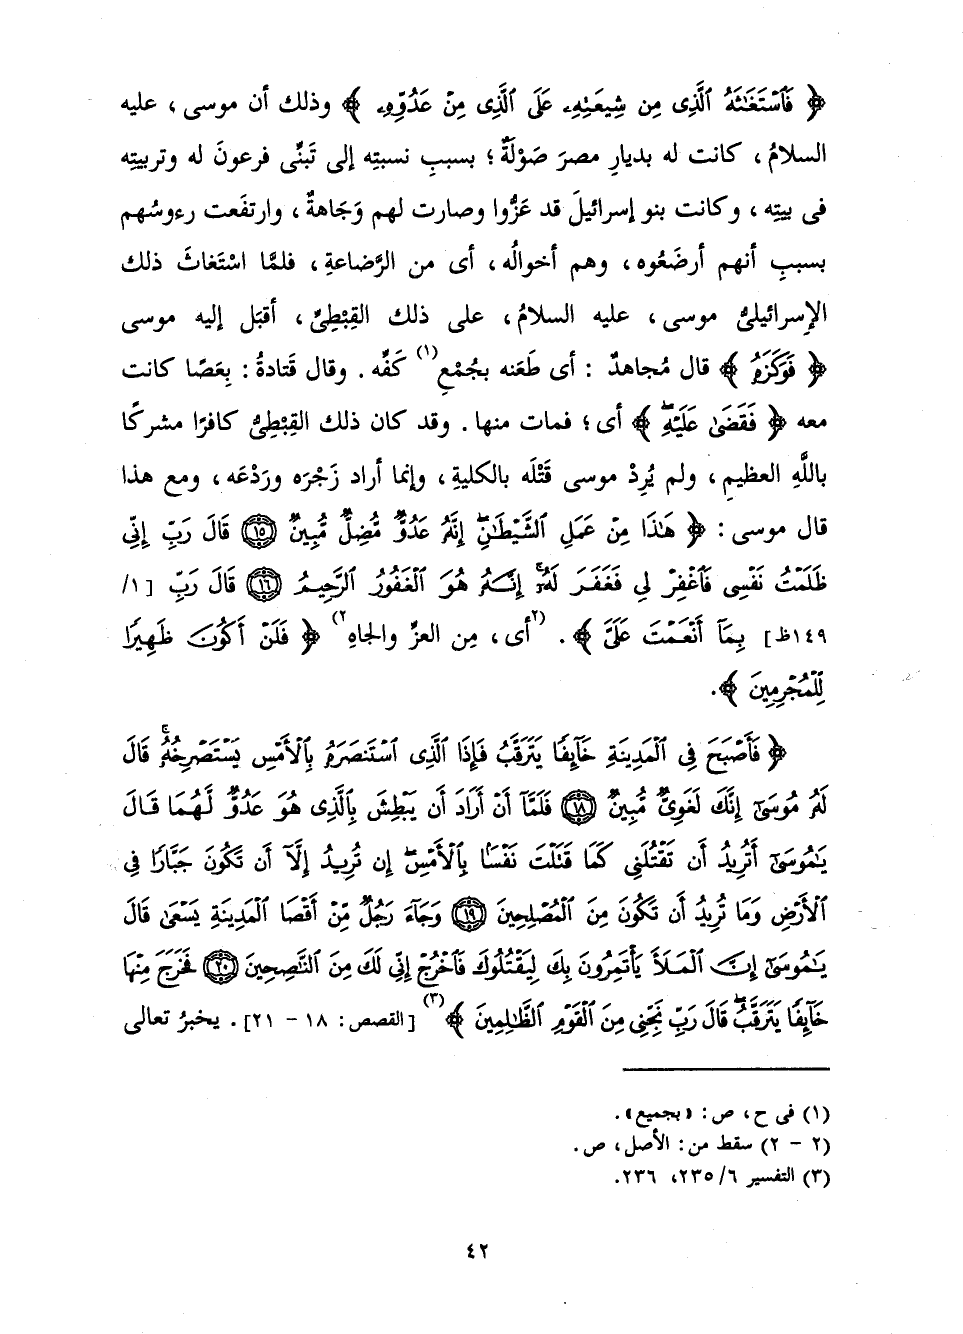 ﴿ فَٱسْتَغَٰثَهُ ٱلَّذِى مِن شِيعَتِهِۦ عَلَى ٱلَّذِى مِنْ عَدُوِّهِۦ ﴾ وذلك أن موسى ، عليه
السلامُ ، كانت له بديارِ مصرَ صَوْلَةٌ ؛ بسببِ نسبتِه إلى تَبَنِّى فرعونَ له وتربيتِه
فى بيتِه ، وكانت بنو إسرائيلَ قد عَزُّوا وصارت لهم وَجَاهةٌ ، وارتفَعت رءوسُهم
بسببِ أنهم أرضَعُوه ، وهم أخوالُه ، أى من الرَّضاعةِ ، فلمَّا اسْتَغاثَ ذلك
الإسرائيلىُّ موسى ، عليه السلامُ ، على ذلك القِبْطِىِّ ، أقبَل إليه موسى
﴿ فَوَكَزَهُۥ ﴾ قال مُجاهدٌ : أى طَعَنه بجُمْعِ(١) كَفِّه . وقال قَتادةُ : بِعَصًا كانت
معه ﴿ فَقَضَىٰ عَلَيْهِ ﴾ أى ؛ فمات منها . وقد كان ذلك القِبْطِىُّ كافرًا مشركًا
باللَّهِ العظيمِ ، ولم يُرِدْ موسى قَتْلَه بالكليةِ ، وإنما أراد زَجْرَه ورَدْعَه ، ومع هذا
قال موسى : ﴿ هَٰذَا مِنْ عَمَلِ ٱلشَّيْطَٰنِ إِنَّهُۥ عَدُوٌّ مُّضِلٌّ مُّبِينٌ ١٥ قَالَ رَبِّ إِنِّى
ظَلَمْتُ نَفْسِى فَٱغْفِرْ لِى فَغَفَرَ لَهُۥٓ إِنَّهُۥ هُوَ ٱلْغَفُورُ ٱلرَّحِيمُ ١٦ قَالَ رَبِّ [ ١/
١٤٩ظ] بِمَآ أَنْعَمْتَ عَلَىَّ ﴾ . (٢أى ، مِن العزِّ والجاهِ٢) ﴿ فَلَنْ أَكُونَ ظَهِيرًا
لِّلْمُجْرِمِينَ ﴾ .
﴿ فَأَصْبَحَ فِى ٱلْمَدِينَةِ خَآئِفًا يَتَرَقَّبُ فَإِذَا ٱلَّذِى ٱسْتَنصَرَهُۥ بِٱلْأَمْسِ يَسْتَصْرِخُهُۥ قَالَ
لَهُۥ مُوسَىٰٓ إِنَّكَ لَغَوِىٌّ مُّبِينٌ ١٨ فَلَمَّآ أَنْ أَرَادَ أَن يَبْطِشَ بِٱلَّذِى هُوَ عَدُوٌّ لَّهُمَا قَالَ
يَٰمُوسَىٰٓ أَتُرِيدُ أَن تَقْتُلَنِى كَمَا قَتَلْتَ نَفْسًۢا بِٱلْأَمْسِ إِن تُرِيدُ إِلَّآ أَن تَكُونَ جَبَّارًا فِى
ٱلْأَرْضِ وَمَا تُرِيدُ أَن تَكُونَ مِنَ ٱلْمُصْلِحِينَ ١٩ وَجَآءَ رَجُلٌ مِّنْ أَقْصَا ٱلْمَدِينَةِ يَسْعَىٰ قَالَ
يَٰمُوسَىٰٓ إِنَّ ٱلْمَلَأَ يَأْتَمِرُونَ بِكَ لِيَقْتُلُوكَ فَٱخْرُجْ إِنِّى لَكَ مِنَ ٱلنَّٰصِحِينَ ٢٠ فَخَرَجَ مِنْهَا
خَآئِفًا يَتَرَقَّبُ قَالَ رَبِّ نَجِّنِى مِنَ ٱلْقَوْمِ ٱلظَّٰلِمِينَ ﴾(٣) [القصص : ١٨ - ٢١] . يخبرُ تعالى
(١) فى ح ، ص : « بجميع » .
(٢ - ٢) سقط من : الأصل ، ص .
(٣) التفسير ٦/ ٢٣٥، ٢٣٦.
٤٢